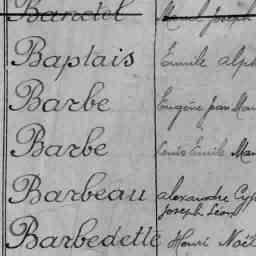 Bandel Marcel Joseph
Baptais Emile alph
Barbe Eugène Jean Mar
Barbe Louis Emile Mar
Barbeau alexandre Cyp
Joseph Léon
Barbedette Henri Noël